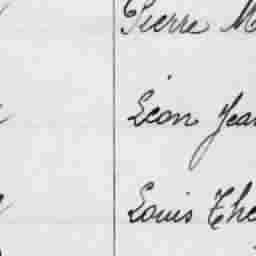 Pierre M
Léon Jean
Louis The